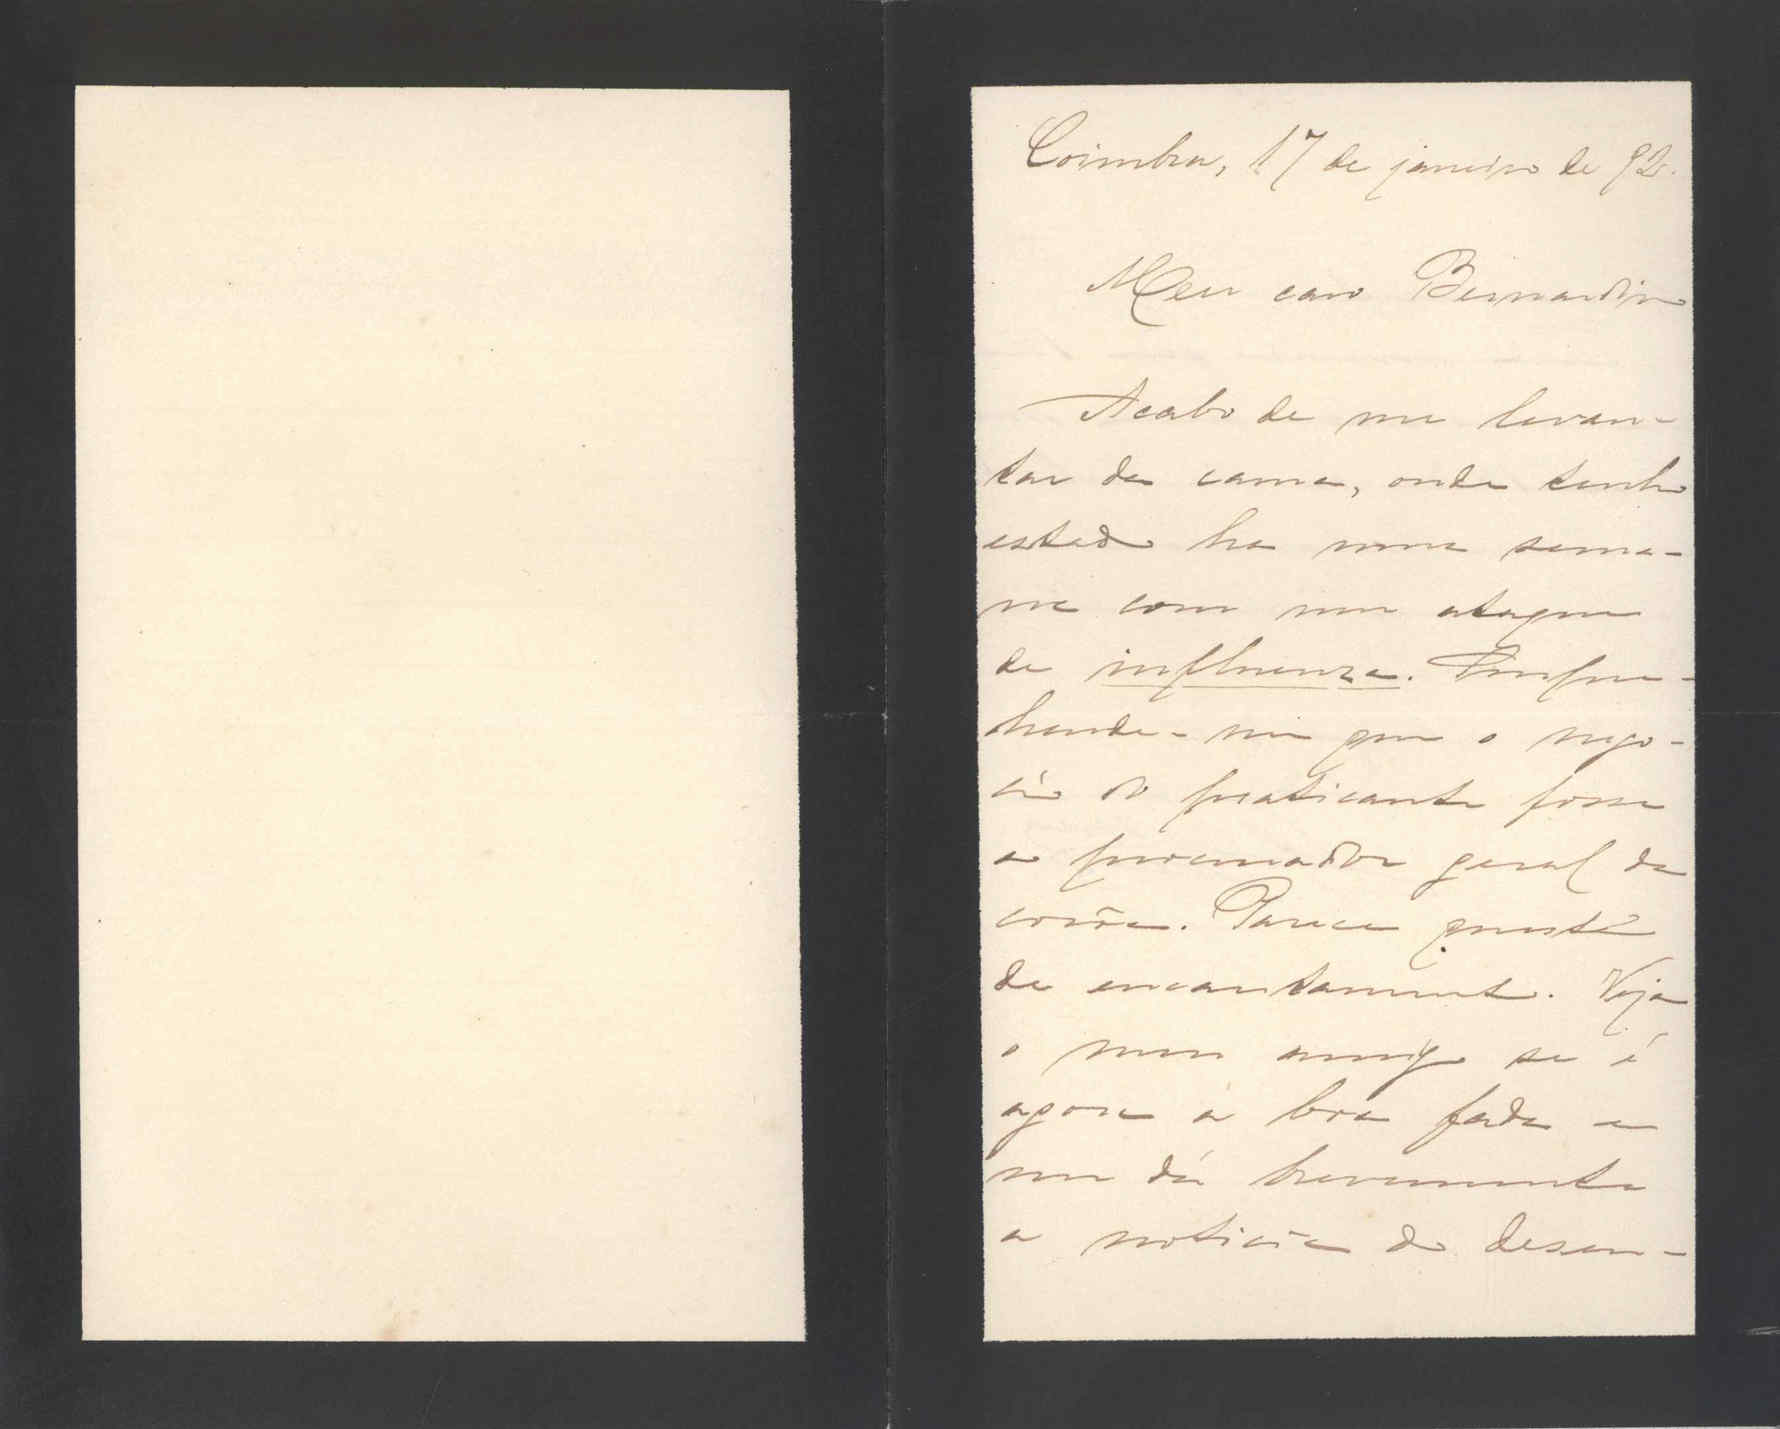 Coimbra, 17 de janeiro de 92.
Meu caro Bernardino
Acabo de me levan-
tar da cama, onde tenho
estado ha uma sema-
na com um ataque
de influenza. Surpre-
hende-me que o nego-
cio do praticante fosse
a procurador geral da
corôa. Parece questão
de encantamento. Veja
o meu amigo se é
agora a boa fada e
me dá brevemente
a noticia do desen-